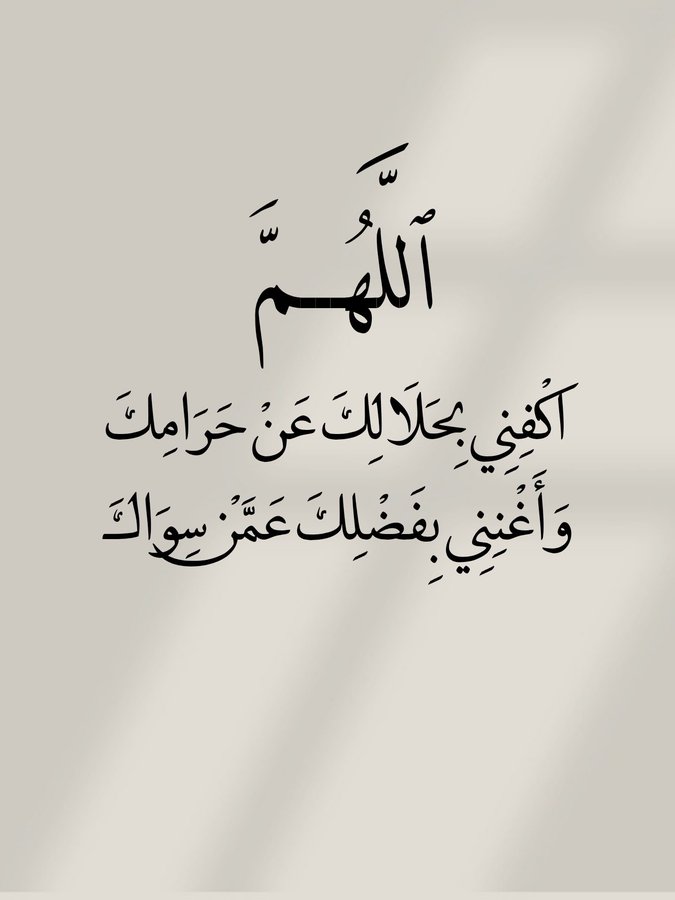 ٱللَّهُمَّ
اكْفِنِي بِحَلَالِكَ عَنْ حَرَامِكَ
وَأَغْنِنِي بِفَضْلِكَ عَمَّنْ سِوَاكَ